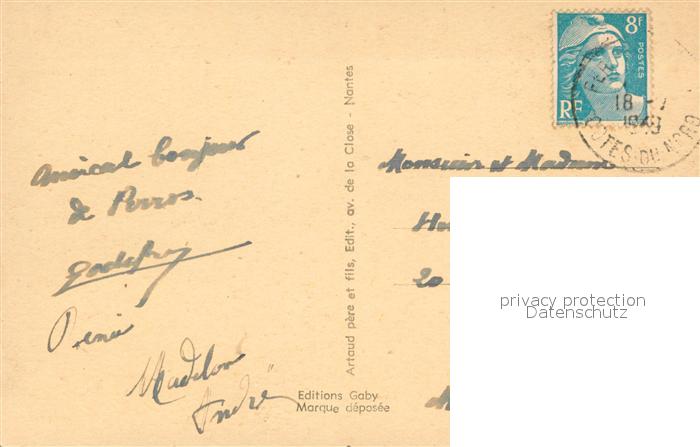 Amical bonjour
de Perros.
Godefroy
Denis
Madelon
André
Artaud père et fils, Edit., av. de la Close - Nantes
Editions Gaby
Marque déposée
8F
POSTES
RF
18 - 1
1949
COTES-DU-NORD
Monsieur et Madame
20
privacy protection
Datenschutz